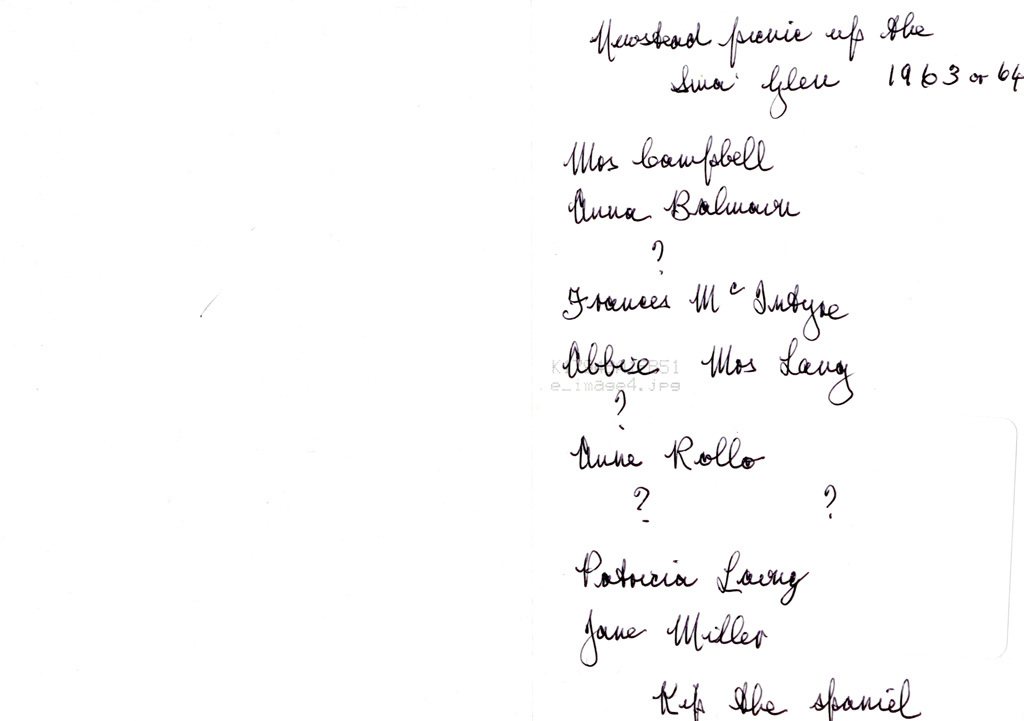 Newstead picnic up the
Sma' Glen 1963 or 64
Mrs Campbell
Anna Balmain
?
Frances Mc Intyre
Abbie Mrs Laing
?
Anne Rollo
? ?
Patricia Laing
Jane Miller
Kip the spaniel
e_image4.jpg